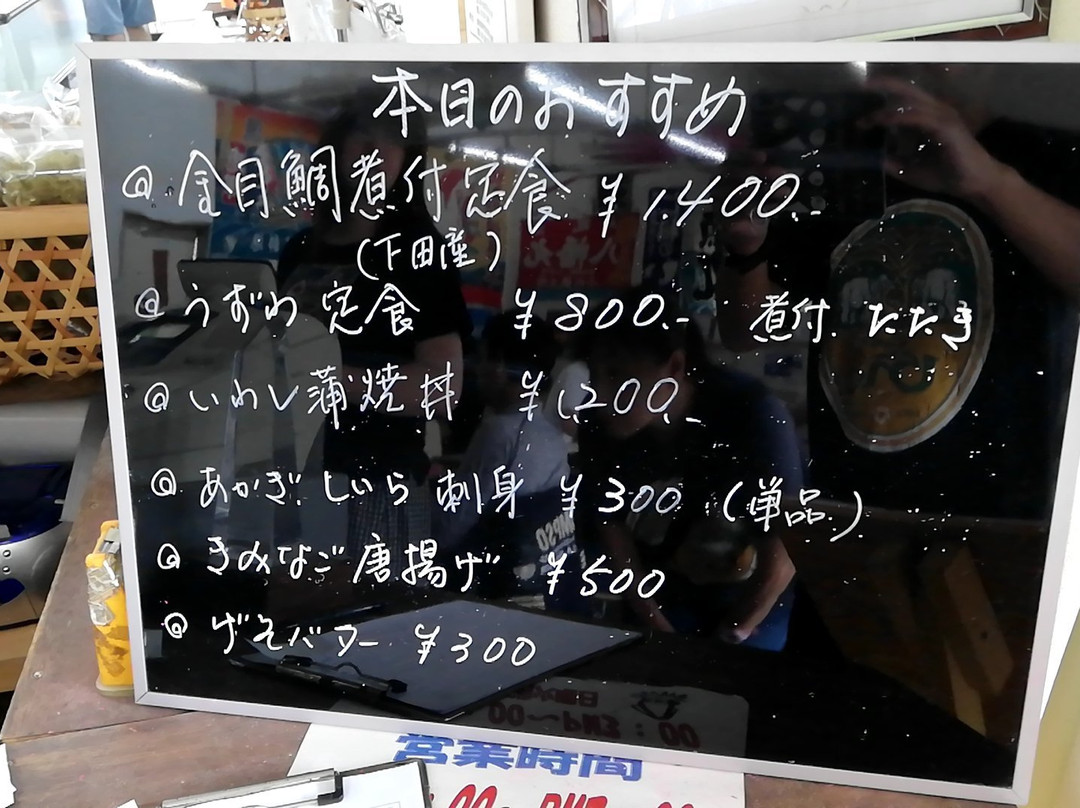 本日のおすすめ
@ 金目鯛煮付定食 ¥1.400.-
(下田産)
@ うずわ 定食 ¥800.- 煮付. たたき
@ いわし蒲焼丼 ¥1,200.-
@ あかぎ.しいら 刺身 ¥300 (単品)
@ きみなご唐揚げ ¥500
@ げそバター ¥300
営業時間